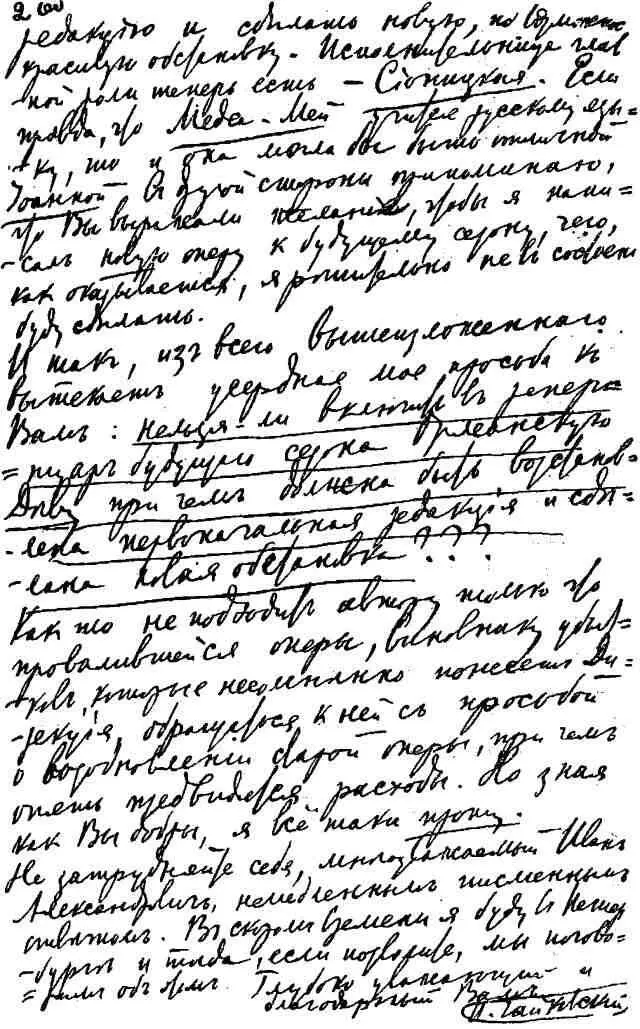 2ую
редакцію и сдѣлать новую, но возможно
красивую обстановку. Исполнительница глав-
-ной роли теперь есть – Сіоницкая. Если
правда, что Медеа-Мей учится русскому язы-
-ку, то и она могла бы быть отличной
Іоанной. Съ другой стороны припоминаю,
что Вы выражали желаніе, чтобы я напи-
-салъ новую оперу къ будущему сезону, чего,
какъ оказывается, я рѣшительно не въ состояніи
буду сдѣлать.
И такъ, изъ всего вышеизложеннаго
вытекаетъ усердная моя просьба къ
Вамъ: нельзя-ли включить въ репер-
=туаръ будущаго сезона Орлеанскую
Дѣву при чемъ должна быть возстанов-
-лена первоначальная редакція и сдѣ-
-лана новая обстановка???
Какъ то не подходитъ автору только что
провалившейся оперы, виновнику убыт-
-ковъ, которые несомнѣнно понесетъ Ди-
-рекція, обращаться къ ней съ просьбой
о возобновленіи старой оперы, при чемъ
опять предвидятся расходы. Но зная
какъ Вы добры, я всё таки прошу.
Не затрудняйте себя, многоуважаемый Иванъ
Александровичъ, немедленнымъ письменнымъ
отвѣтомъ. Въ скоромъ времени я буду въ Петер-
-бургѣ и тогда, если позволите, мы погово-
=римъ объ этомъ. Глубоко уважающій и
благодарный Вамъ
П. Чайковскій